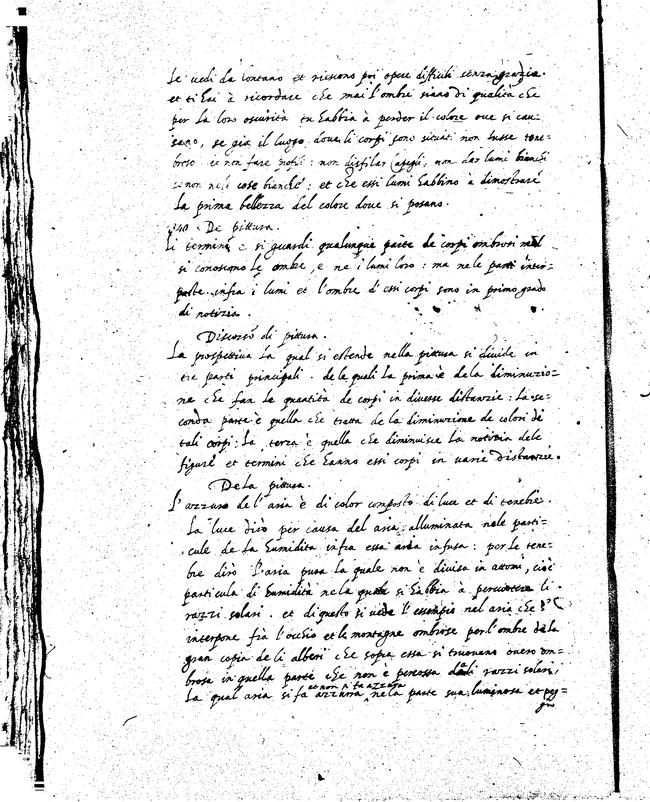 le uedi da lontano et riescono poi opere difficili senza grazia.
et ti hai à ricordare che mai l'ombre siano di qualità che
per la loro oscurità tu habbia à perder il colore oue si cau=
sano, se già il luogo doue li corpi sono situati non fusse tene=
broso e non fare profili: non disfilar capegli, non dar lumi bianchi
se non nele cose bianche: et che essi lumi habbino à dimostrare
la prima bellezza del colore doue si posano.
240 De pittura.
Li termini e si guardi qualunque parte de corpi ombrosi mal
si conoscono le ombre, e ne i lumi loro: ma nele parti inter=
poste infra i lumi et l'ombre d'essi corpi sono in primo grado
di notizia.
Discorso di pittura.
La prospettiua la qual si estende nella pittura si diuide in
tre parti principali. dele quali la prima è dela diminuzio=
ne che fan le quantità de corpi in diuerse distanzie: la se=
conda parte è quella che tratta de la diminuzione de colori di
tali corpi: la terza è quella che diminuisce la notizia dele
figure et termini che hanno essi corpi in uarie distanzie.
Dela pittura.
L'azzuro de l'aria è di color composto di luce et di tenebre.
La luce dirò per causa del aria alluminata nele parti=
cule de la humidità infra essa aria infusa: per le tene=
bre dirò l'aria pura la quale non è diuisa in attomi, cioè
particula di humidità ne la quale si habbia à percuotere li
razzi solari. et di questo si uede l'essempio nel aria che s'
interpone fra l'occhio et le montagne ombrose per l'ombre dela
gran copia de li alberi che sopra essa si truouano ouero om=
brosa in quella parte che non è percossa dali razzi solari,
la qual aria si fa azzurra et non si fa azzura nela parte sua luminosa et peg=
gio